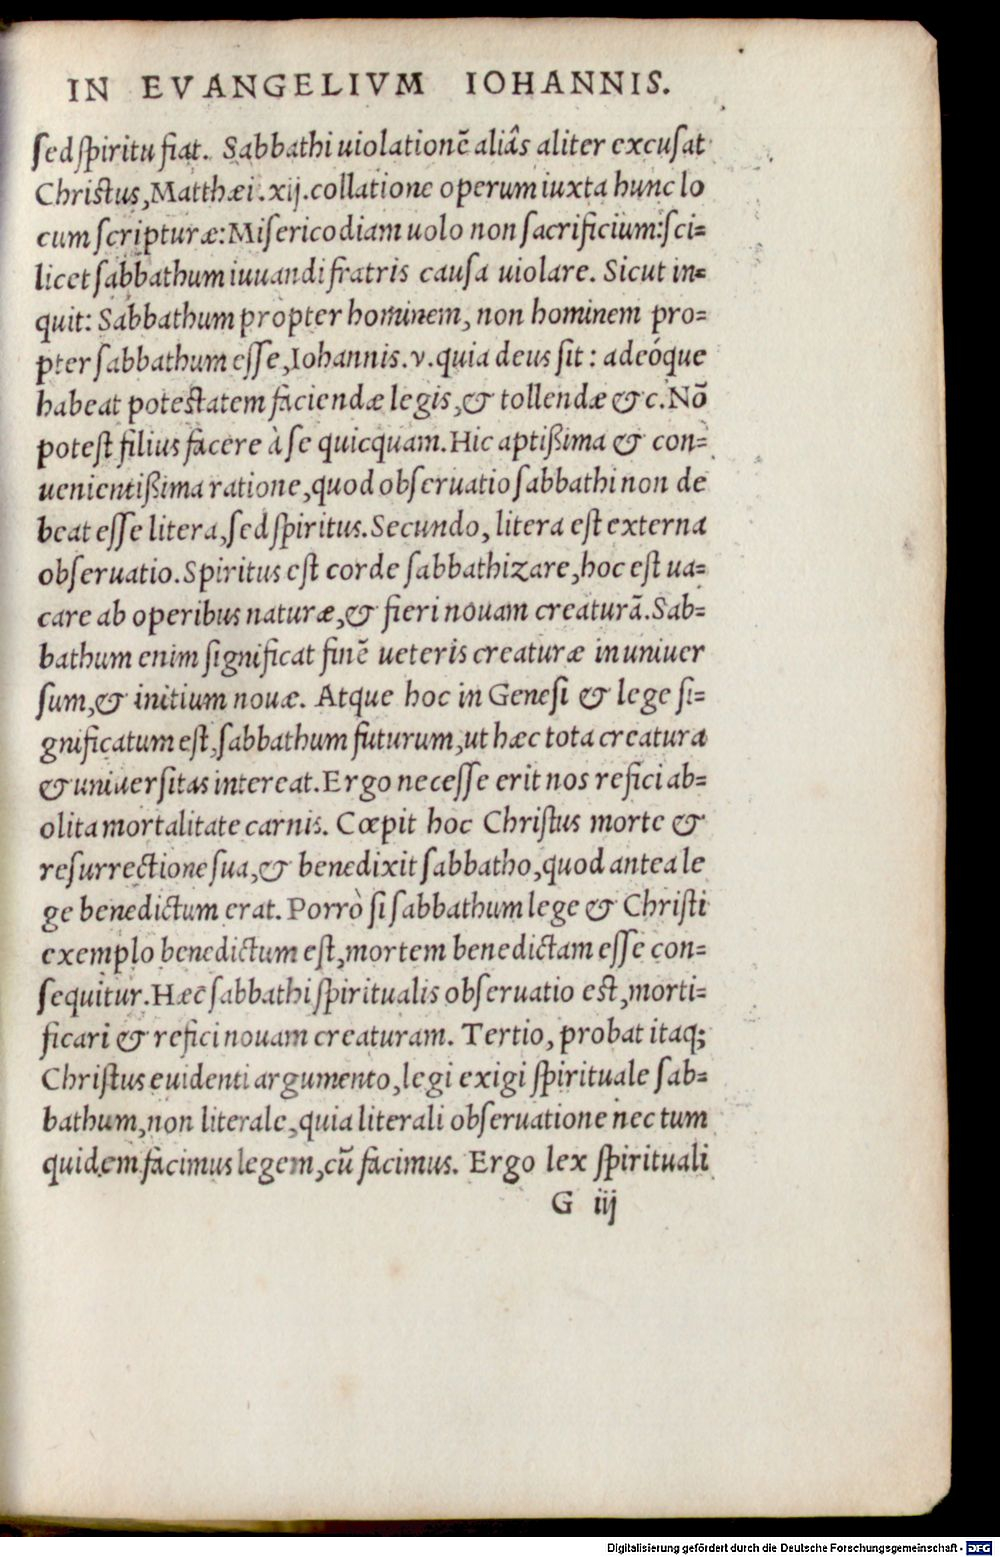 IN EVANGELIVM IOHANNIS.
sed spiritu fiat. Sabbathi uiolationẽ aliâs aliter excusat
Christus, Matthæi. xij. collatione operum iuxta hunc lo
cum scripturæ: Misericodiam uolo non sacrificium: sci=
licet sabbathum iuuandi fratris causa uiolare. Sicut in=
quit: Sabbathum propter hominem, non hominem pro=
pter sabbathum esse, Iohannis. v. quia deus sit: adeóque
habeat potestatem faciendæ legis, & tollendæ &c. Nõ
potest filius facere à se quicquam. Hic aptißima & con=
uenientißima ratione, quod obseruatio sabbathi non de
beat esse litera, sed spiritus. Secundo, litera est externa
obseruatio. Spiritus est corde sabbathizare, hoc est ua=
care ab operibus naturæ, & fieri nouam creaturã. Sab=
bathum enim significat finẽ ueteris creaturæ in uniuer
sum, & initium nouæ. Atque hoc in Genesi & lege si=
gnificatum est, sabbathum futurum, ut hæc tota creatura
& uniuersitas intereat. Ergo necesse erit nos refici ab=
olita mortalitate carnis. Cœpit hoc Christus morte &
resurrectione sua, & benedixit sabbatho, quod antea le
ge benedictum erat. Porrò si sabbathum lege & Christi
exemplo benedictum est, mortem benedictam esse con=
sequitur. Hæc sabbathi spiritualis obseruatio est, morti=
ficari & refici nouam creaturam. Tertio, probat itaq;
Christus euidenti argumento, legi exigi spirituale sab=
bathum, non literale, quia literali obseruatione nec tum
quidem facimus legem, cũ facimus. Ergo lex spirituali
G iij
Digitalisierung gefördert durch die Deutsche Forschungsgemeinschaft - DFG